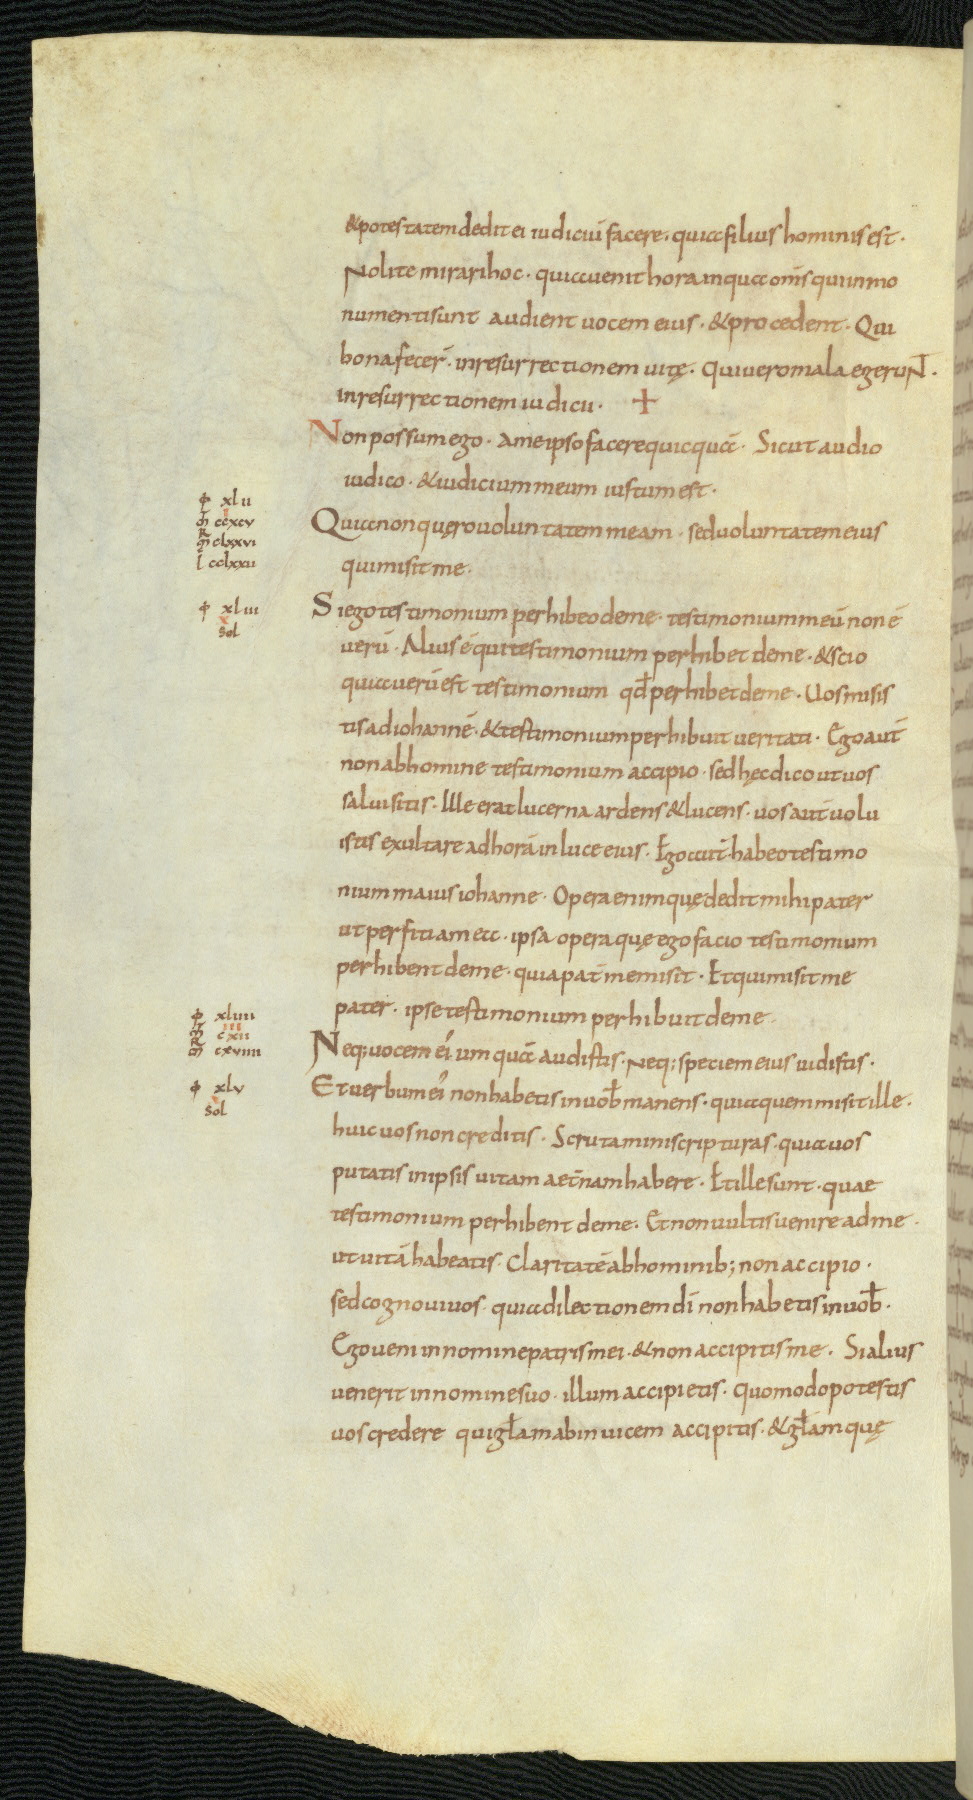 & potestatem dedit ei iudiciū facere · quia filius hominis est ·
Nolite mirari hoc · quia uenit hora in qua om̄s qui in mo
numentis sunt audient uocem eius · & procedent · Qui
bona fecer̄ · in resurrectionem uitę · qui uero mala egerun̄t ·
in resurrectionem iudicii · +
Non possum ego · a me ipso facere quicquā · Sicut audio
iudico · & iudicium meum iustum est ·
φ xlv
I
m̄ ccxcv
R
m̄ clxxvi
l cclxxii
Quia non quęro uoluntatem meam · sed uoluntatem eius
qui misit me ·
φ xliii
x
sol
Si ego testimonium perhibeo de me · testimonium meū non ē
uerū · Alius ē qui testimonium perhibet de me · & scio
quia uerū est testimonium qd̄ perhibet de me · Uos misis
tis ad iohannē · & testimonium perhibuit ueritati · Ego aut̄
non ab homine testimonium accipio · sed hęc dico ut uos
salui sitis · Ille erat lucerna ardens & lucens · uos aut̄ uolu
istis exultare ad horā in luce eius · Ego aut̄ habeo testimo
nium maius iohanne · Opera enim quę dedit mihi pater
ut perfitiam ea · ipsa opera quę ego facio testimonium
perhibent de me · quia pat̄ me misit · Et qui misit me
pater · ipse testimonium perhibuit de me ·
φ xliiii
III
m̄ cxii
R
m̄ cxviiii
Neq; uocem ei' umquā audistis · Neq; speciem eius uidistis ·
φ xlv
x
sol
Et uerbum ei' non habetis in uob̄ manens · quia quem misit ille ·
huic uos non creditis · Scrutamini scripturas · quia uos
putatis in ipsis uitam aet̄nam habere · Et ille sunt · quae
testimonium perhibent de me · Et non uultis uenire ad me ·
ut uitā habeatis · Claritatē ab hominib; non accipio ·
sed cognoui uos · quia dilectionem dī non habetis in uob̄ ·
Ego ueni in nomine patris mei · & non accipitis me · Si alius
uenerit in nomine suo · illum accipietis · Quomodo potestis
uos credere qui gl̄am ab inuicem accipitis · & gl̄am quę